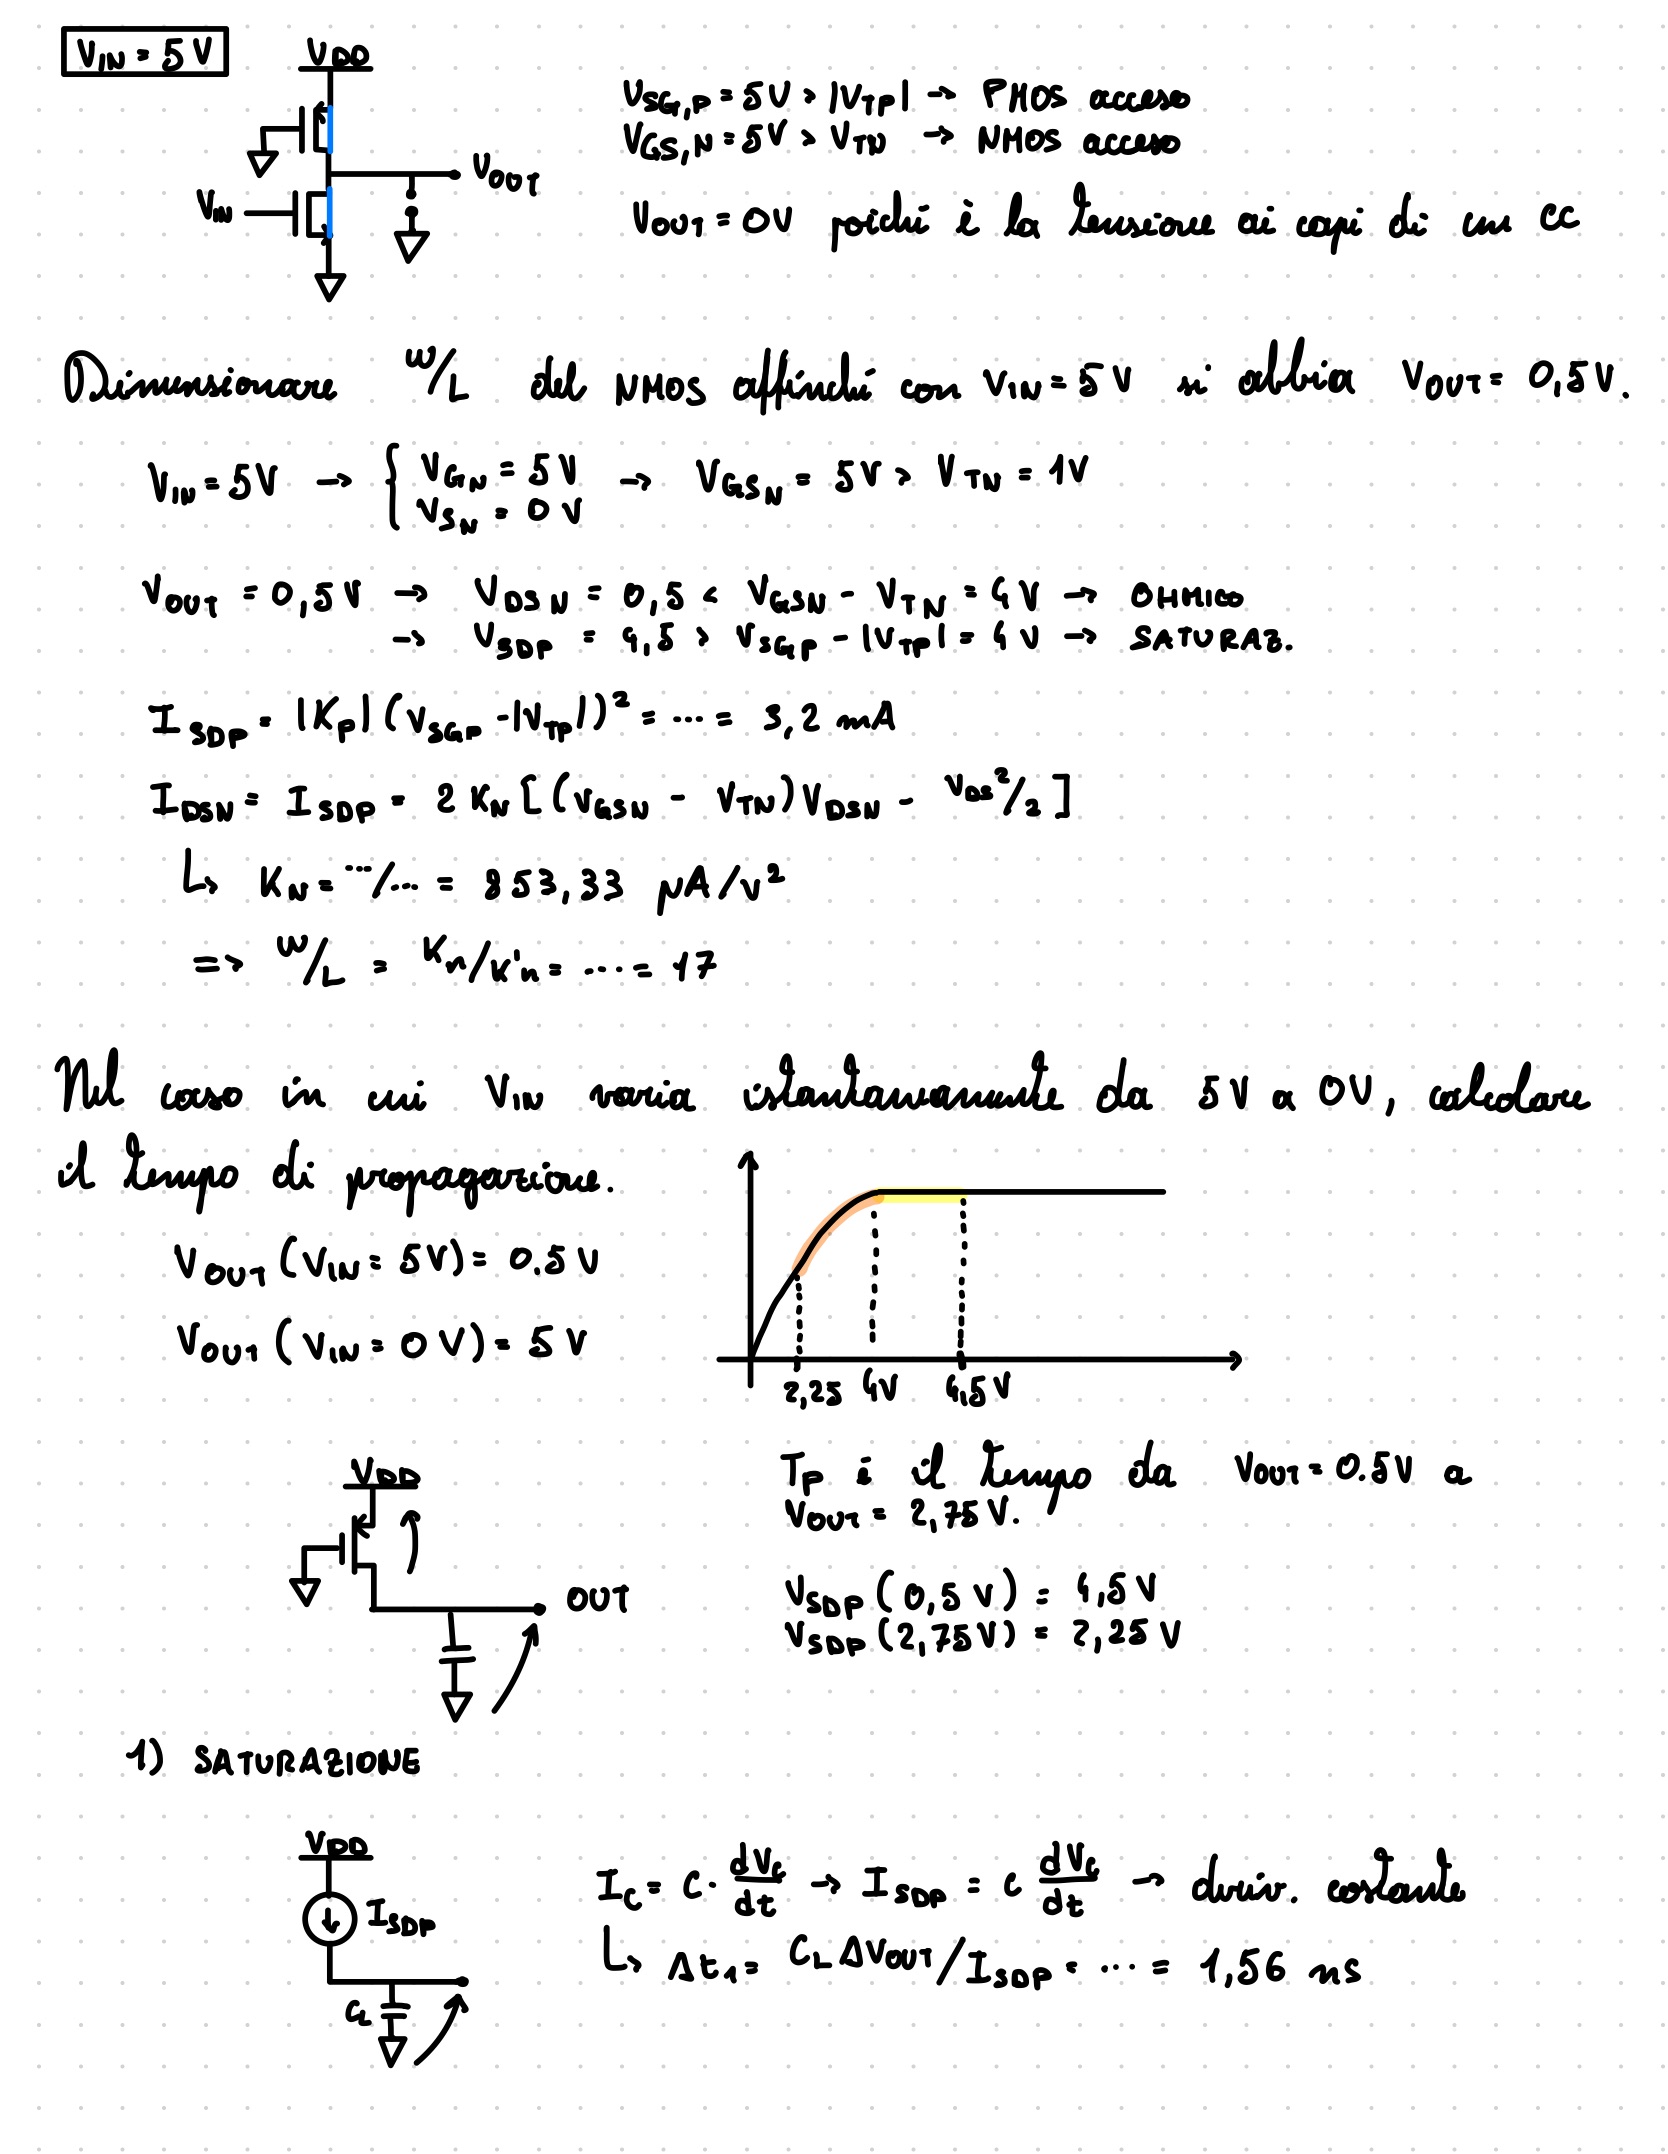 V_IN = 5 V
V_DD
V_SG,P = 5V > |V_TP| → PMOS acceso
V_GS,N = 5V > V_TN → NMOS acceso
V_OUT
V_IN
V_OUT = 0V poiché è la tensione ai capi di un CC
Dimensionare W/L del NMOS affinché con V_IN = 5 V si abbia V_OUT = 0,5 V.
V_IN = 5 V → { V_GN = 5 V → V_GSN = 5V > V_TN = 1V
V_SN = 0 V
V_OUT = 0,5 V → V_DSN = 0,5 < V_GSN - V_TN = 4 V → OHMICO
→ V_SDP = 4,5 > V_SGP - |V_TP| = 4 V → SATURAZ.
I_SDP = |K_P| (V_SGP - |V_TP|)² = ... = 3,2 mA
I_DSN = I_SDP = 2 K_N [(V_GSN - V_TN) V_DSN - V_DS²/2]
↳ K_N = .../... = 853,33 µA/V²
=> W/L = K_n/K'_n = .... = 17
Nel caso in cui V_IN varia istantaneamente da 5V a 0V, calcolare
il tempo di propagazione.
V_OUT (V_IN = 5V) = 0.5 V
V_OUT (V_IN = 0 V) = 5 V
2,25 4V 4,5 V
V_DD
OUT
T_P è il tempo da V_OUT = 0.5 V a
V_OUT = 2,75 V.
V_SDP (0,5 V) = 4,5 V
V_SDP (2,75V) = 2,25 V
1) SATURAZIONE
V_DD
I_SDP
C_L
I_C = C · dV_C/dt → I_SDP = C dV_C/dt → deriv. costante
↳ Δt_1 = C_L ΔV_OUT / I_SDP = ... = 1,56 ns